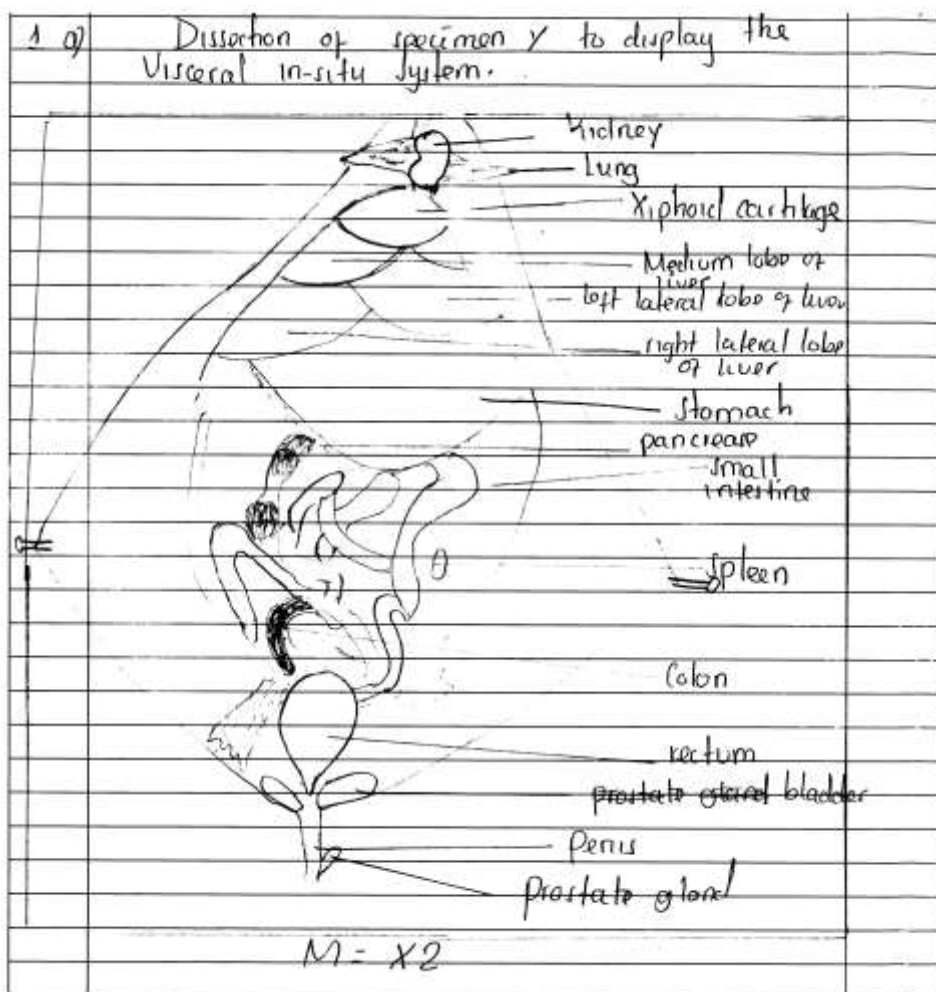 1 a) Dissection of specimen Y to display the
Visceral in-situ System.
Kidney
Lung
Xiphoid cartilage
Medium lobe of
liver
left lateral lobe of liver
right lateral lobe
of liver
Stomach
pancrease
small
intestine
Spleen
Colon
rectum
prostate gland bladder
Penis
Prostate gland
M = X2